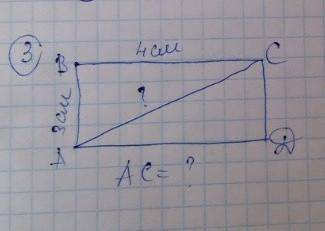 3
4см
B C
?
3см
A D
AC = ?